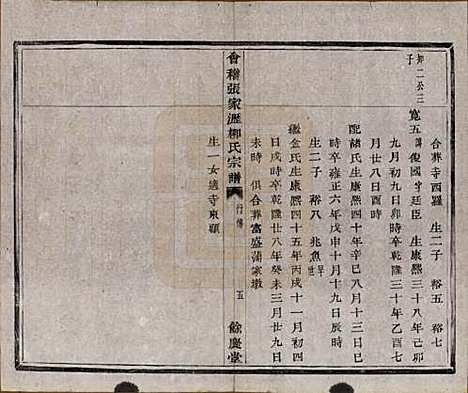 合葬寺西羅 生二子 裕五 裕七
邦二公三子
寬五 諱俊國 字廷臣 生康熙三十八年己卯
九月初九日卯時卒乾隆三十年乙酉七
月廿八日酉時
配諸氏生康熙四十年辛巳八月十三日巳
時卒雍正六年戊申十月十九日辰時
生二子 裕八 兆魚早卒
繼金氏生康熙四十五年丙戌十一月初四
日戌時卒乾隆廿八年癸未三月廿九日
未時 俱合葬富盛蒲家墩
生一女適寺東顧
會稽張家瀝柳氏宗譜 行傳 五 餘慶堂